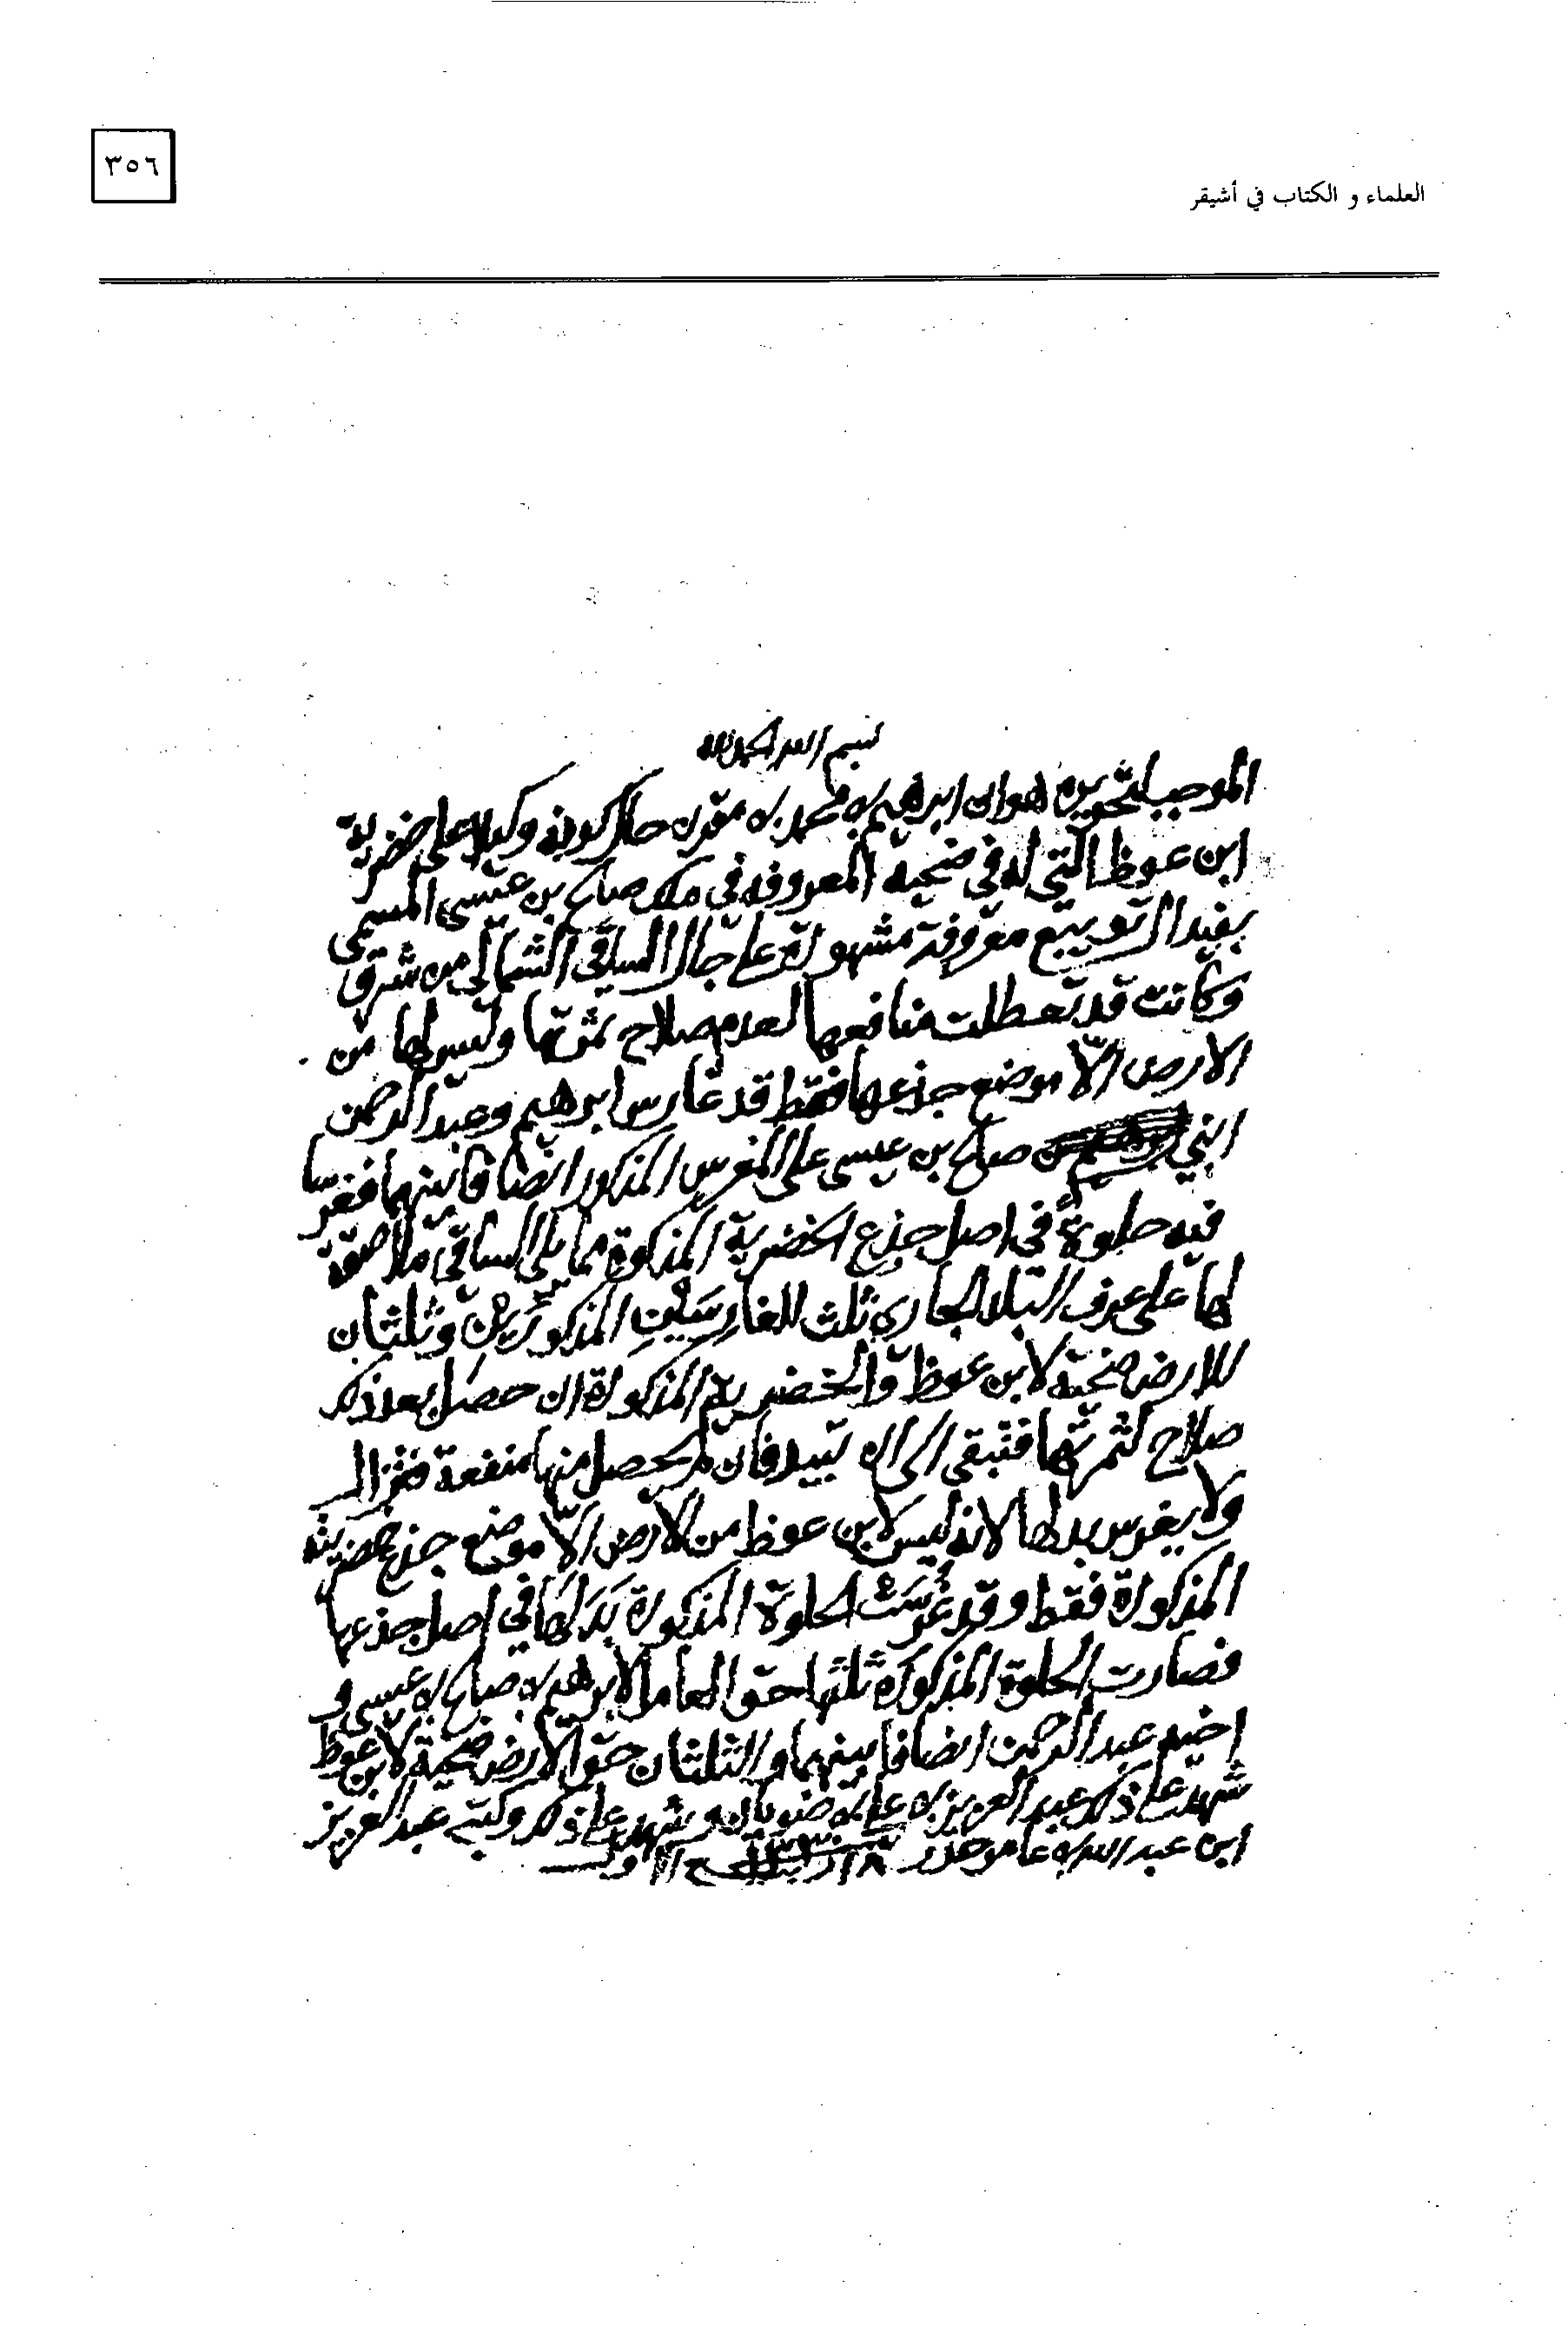 ٣٥٦
العلماء و الكتاب في أشيقر
بسم الله الحمد لله
الموجب لتحريره هو ان ابراهيم بن محمد بن مقرن حال كونه وكيلا على خضرية
ابن عوظ التي له في ضحية المعروفه في ملك صالح بن عيسى المسمى
بفيد معروفة مشهورة على جال الساقي الشمالي من شرق
وكانت قد تعطلت منافعها لعدم صلاح ثمرتها وليس لها من
الارض الا موضع جذعها فقط قد غارس ابراهيم وعبد الرحمن
ابني صالح بن عيسى على المغرس المذكور انصافا بينهما فغرسا
فيه حلوةً في اصل جذع الخضرية المذكورة مما يلي الساقي ملاصقة
لها على عرف البلد الجاري ثلث للغارسَيْنِ المذكورَيْن وثلثان
للارض ضحية لابن عوظ والخضرية المذكورة ان حصل بعد ذلك
صلاح لثمرتها فتبقى الى ان تبيد فان لم يحصل منها منفعة فتزال
ولا يغرس بدلها لانه ليس لابن عوظ من الارض الّا موضع جذع خضريته
المذكورة فقط وقد غُرِسَتْ الحلوة المذكورة بَدَلَهَا في اصل جذعها
فصارت الحلوة المذكورة ثلثها حق العامل لابراهيم بن صالح بن عيسى و
اخيه عبد الرحمن انصافا بينهما والثلثان حق الارض ضحية لابن عوظ
شهد على ذلك عبد العزيز بن علي بن وشهد على ذلك وكتبه عبد العزيز
ابن عبد الله بن عامر